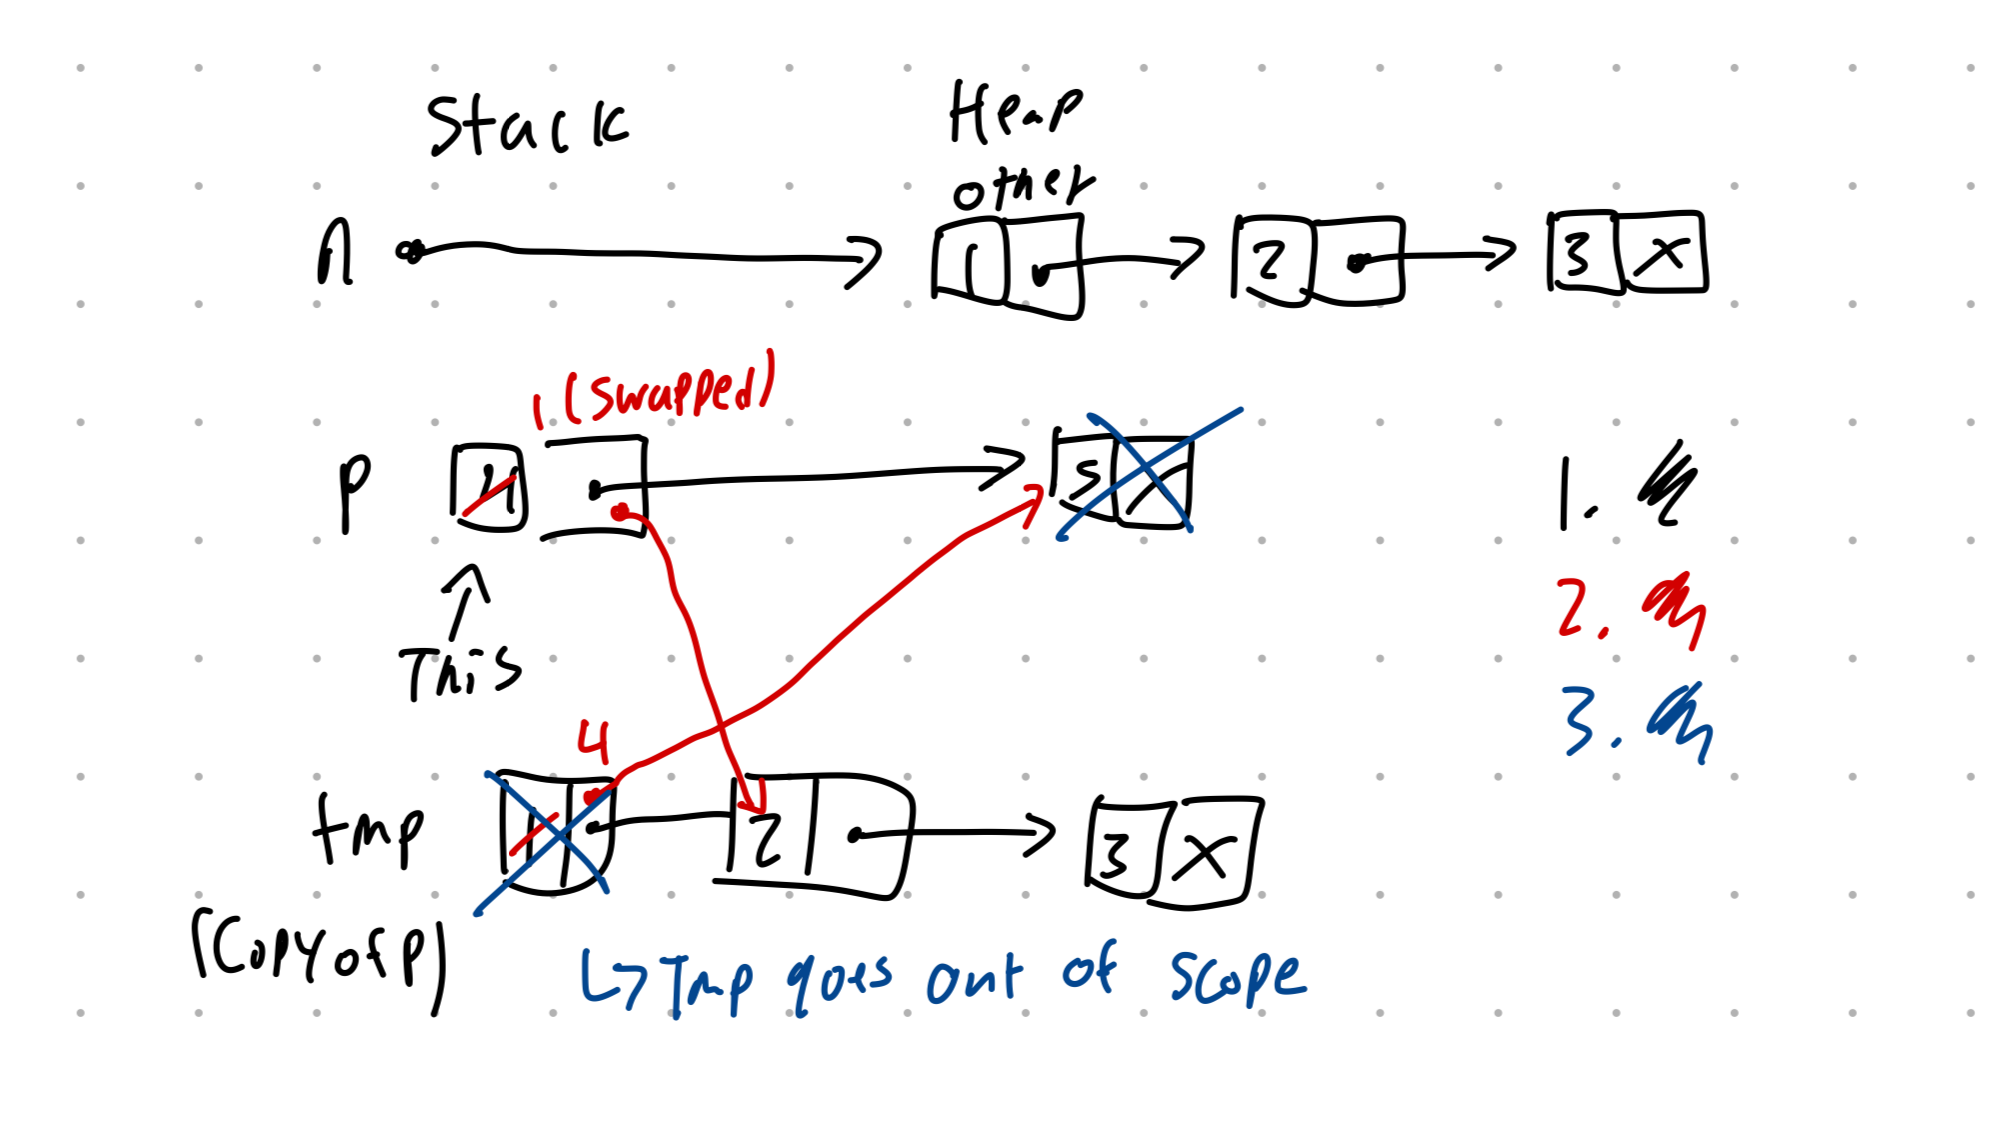 Stack Heap
other
n 1 2 3 X
1 (swapped)
p 4 5
This
4
tmp 1 2 3 X
(Copy of p)
↳ Tmp goes out of scope
1.
2.
3.